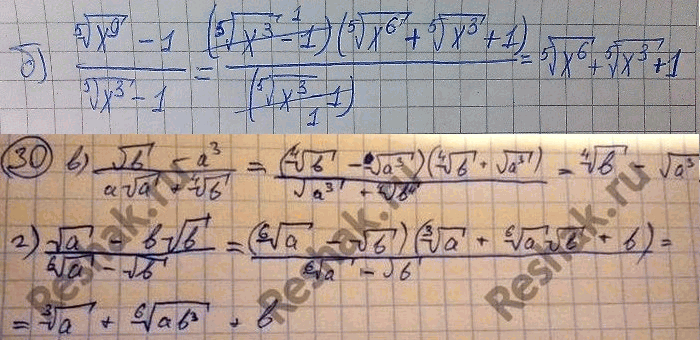 б) (⁵√x⁹ - 1)/(⁵√x³ - 1) = ((⁵√x³ - 1)(⁵√x⁶ + ⁵√x³ + 1))/(⁵√x³ - 1) = ⁵√x⁶ + ⁵√x³ + 1
30 в) (√b - a³)/(a√a + ⁴√b) = ((⁴√b - √a³)(⁴√b + √a³))/(√a³ + ⁴√b) = ⁴√b - √a³
г) (√a - b√b)/(⁶√a - √b) = ((⁶√a - √b)(³√a + ⁶√a√b + b))/(⁶√a - √b) =
= ³√a + ⁶√ab³ + b
Reshak.ru
Reshak.ru
Reshak.ru